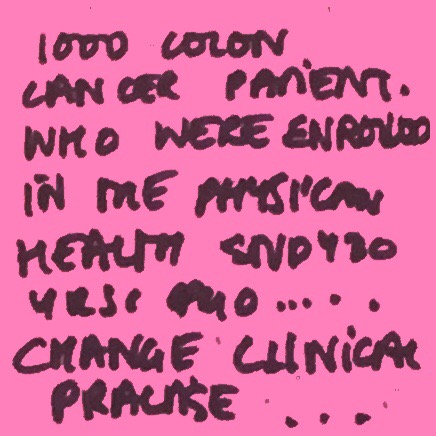 1000 COLON
CANCER PATIENT.
WHO WERE ENROLLED
IN THE PHYSICIAN
HEALTH STUDY 30
YRS AGO .....
CHANGE CLINICAL
PRACTISE ....